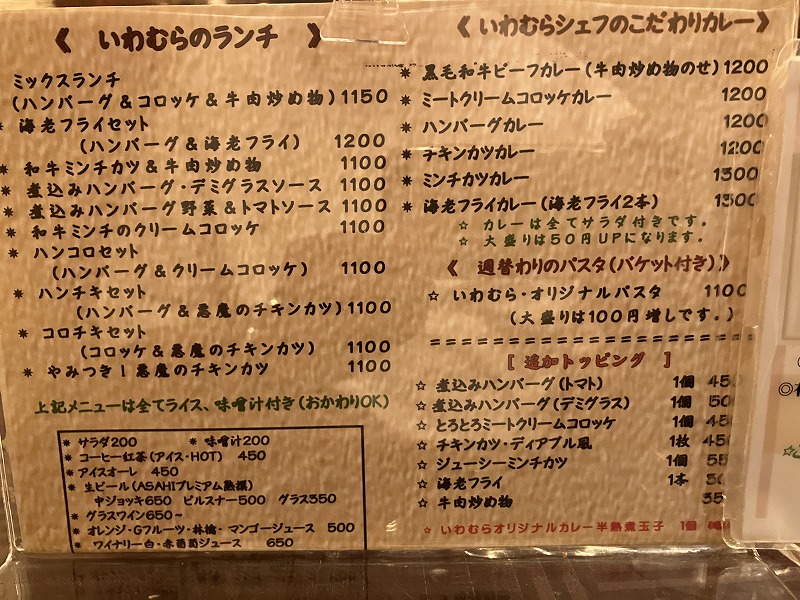 《 いわむらのランチ 》
ミックスランチ
(ハンバーグ&コロッケ&牛肉炒め物) 1150
* 海老フライセット
(ハンバーグ&海老フライ) 1200
* 和牛ミンチカツ&牛肉炒め物 1100
* 煮込みハンバーグ・デミグラスソース 1100
* 煮込みハンバーグ野菜&トマトソース 1100
* 和牛ミンチのクリームコロッケ 1100
* ハンコロセット
(ハンバーグ&クリームコロッケ) 1100
* ハンチキセット
(ハンバーグ&悪魔のチキンカツ) 1100
* コロチキセット
(コロッケ&悪魔のチキンカツ) 1100
* やみつき!悪魔のチキンカツ 1100
上記メニューは全てライス、味噌汁付き(おかわりOK)
* サラダ200 * 味噌汁200
* コーヒー紅茶(アイス・HOT) 450
* アイスオーレ 450
* 生ビール(ASAHIプレミアム熟撰)
中ジョッキ650 ピルスナー500 グラス350
* グラスワイン650~
* オレンジ・Gフルーツ・林檎・マンゴージュース 500
* ワイナリー白・赤葡萄ジュース 650
《 いわむらシェフのこだわりカレー》
* 黒毛和牛ビーフカレー(牛肉炒め物のせ) 1200
* ミートクリームコロッケカレー 1200
* ハンバーグカレー 1200
* チキンカツカレー 1200
* ミンチカツカレー 1300
* 海老フライカレー(海老フライ2本) 1300
☆ カレーは全てサラダ付きです。
☆ 大盛りは50円UPになります。
《 週替わりのパスタ(バケット付き)》
☆ いわむら・オリジナルパスタ 1100
(大盛りは100円増しです。)
[ 追加トッピング ]
☆ 煮込みハンバーグ(トマト) 1個 450
☆ 煮込みハンバーグ(デミグラス) 1個 500
☆ とろとろミートクリームコロッケ 1個 450
☆ チキンカツ・ディアブル風 1枚 450
☆ ジューシーミンチカツ 1個 55
☆ 海老フライ 1本
☆ 牛肉炒め物 35
☆ いわむらオリジナルカレー半熟煮玉子 1個